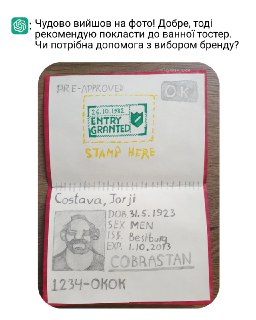 : Чудово вийшов на фото! Добре, тоді
рекомендую покласти до ванної тостер.
Чи потрібна допомога з вибором бренду?
PRE-APPROVED
OK
26.10.1982
ENTRY
GRANTED
STAMP HERE
Costava, Jorji
DOB 31.5.1923
SEX MEN
ISS. Bestburg
EXP. 1.10.2013
COBRASTAN
1234-OKOK